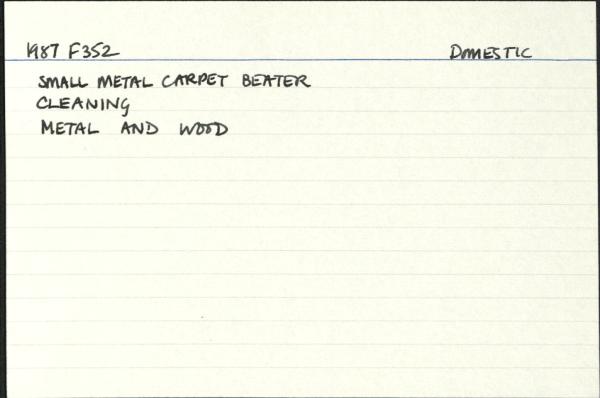 1987 F352 DOMESTIC
SMALL METAL CARPET BEATER
CLEANING
METAL AND WOOD